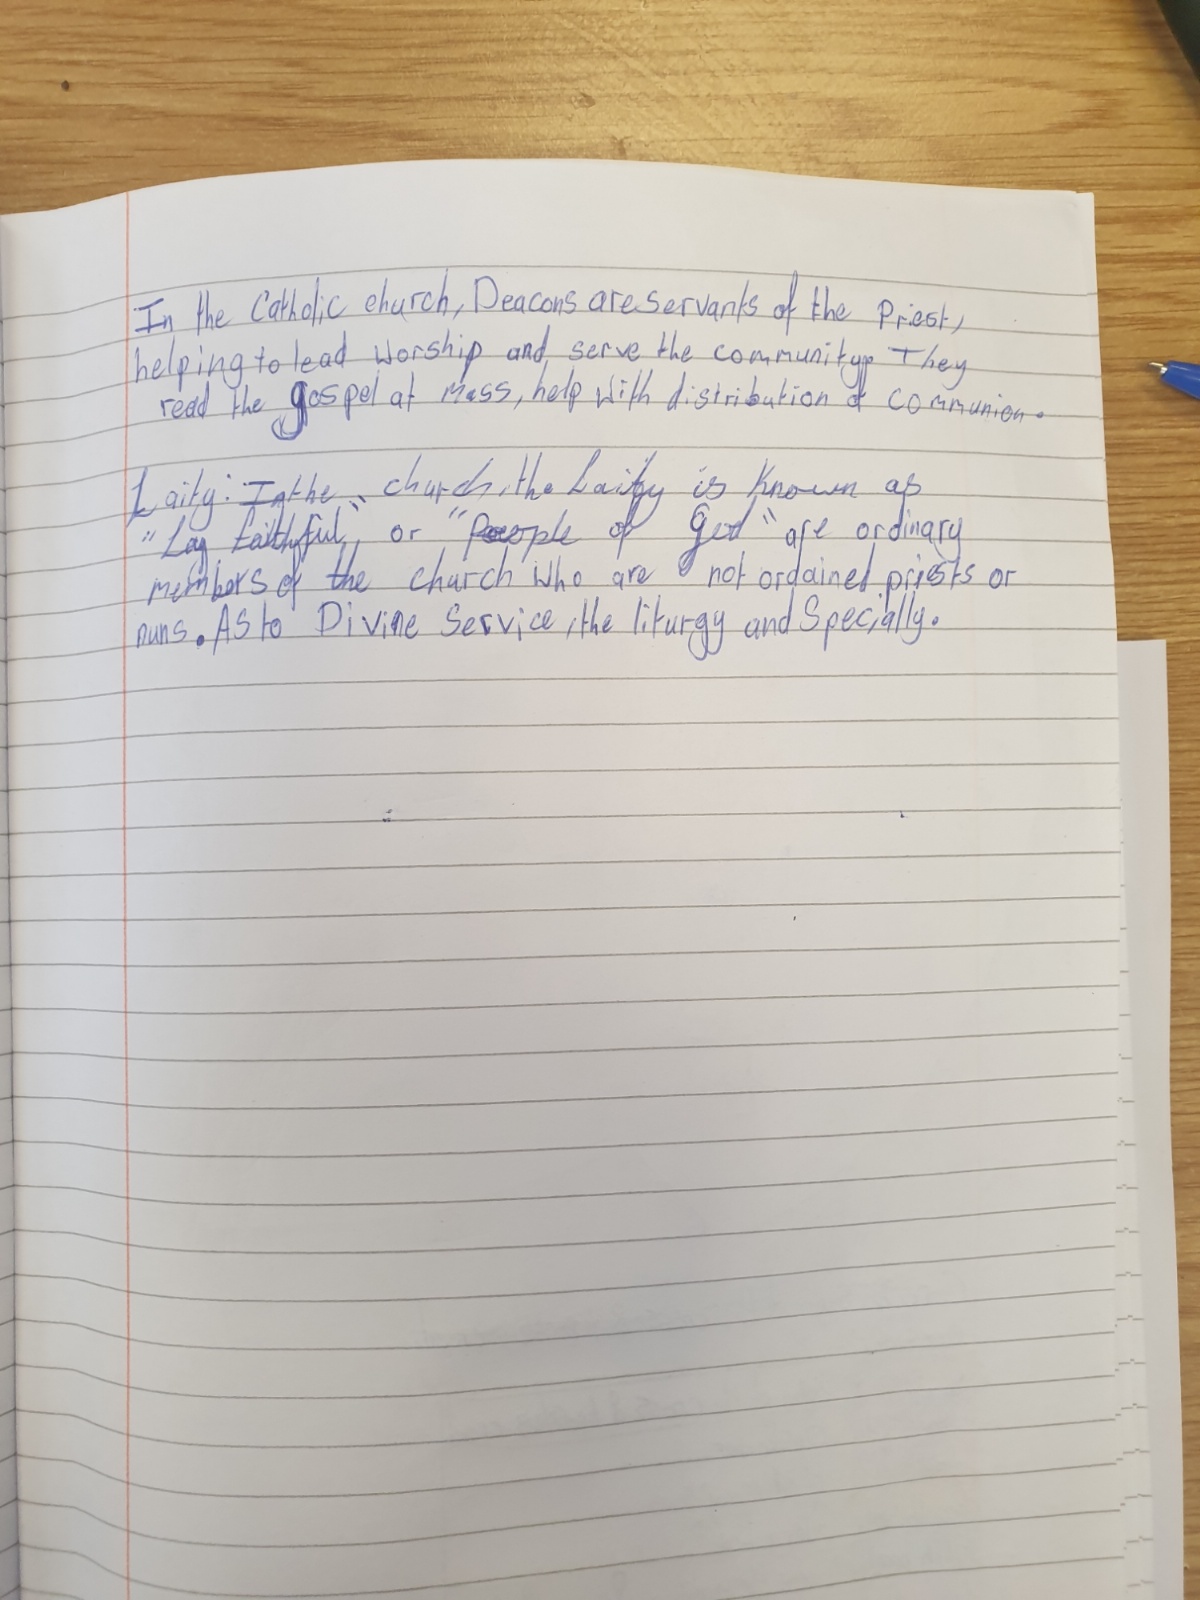 In the Catholic church, Deacons are servants of the Priest,
helping to lead worship and serve the community. They
read the gospel at Mass, help with distribution of communion.
Laity: In the church, the Laity is known as
"Lay faithful", or "People of God" are ordinary
members of the church who are not ordained priests or
nuns. As to Divine Service, the liturgy and Specially.